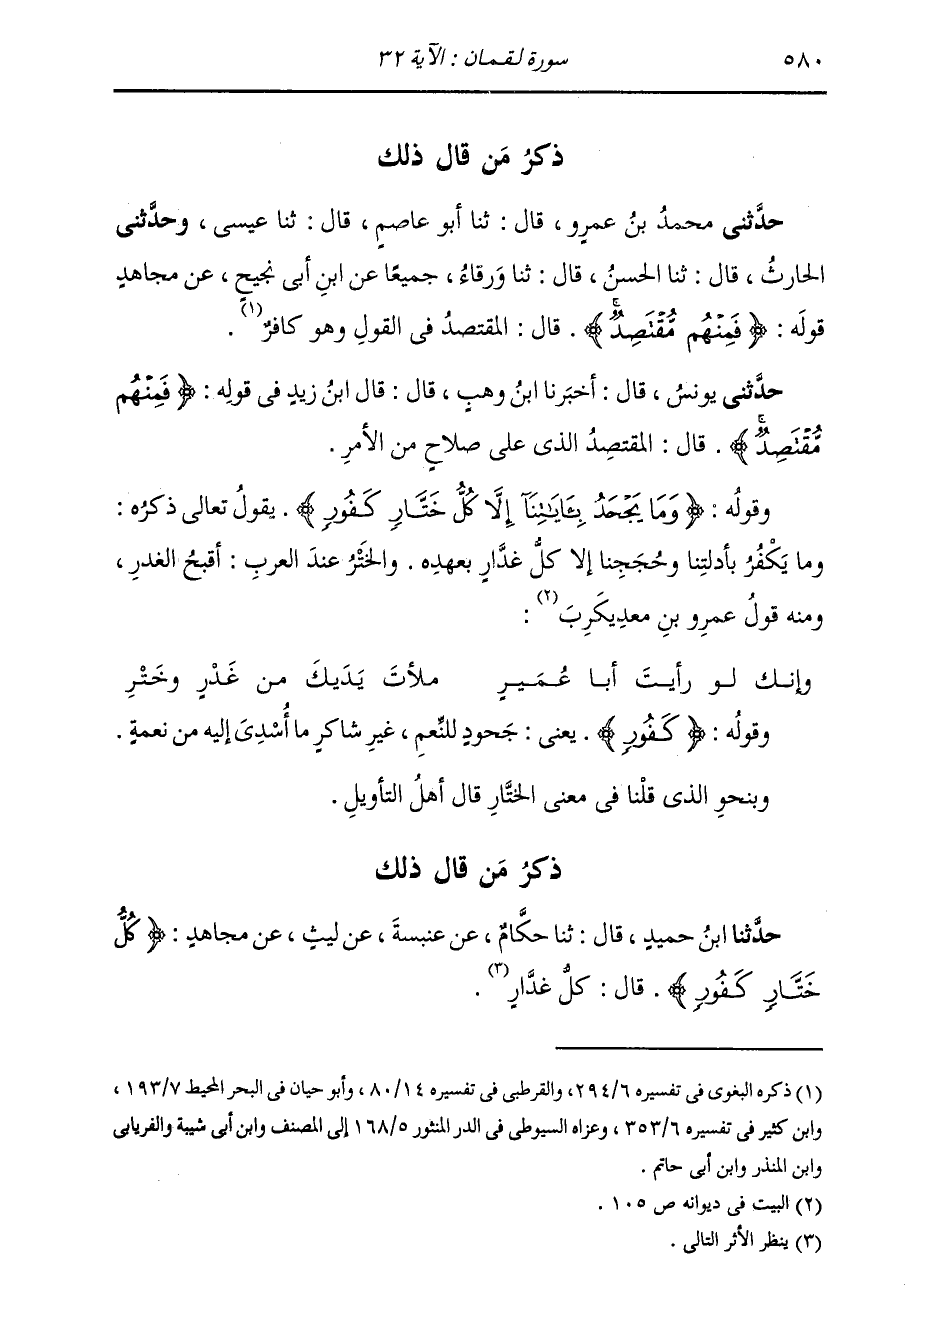 ٥٨٠ سورة لقمان : الآية ٣٢
ذكرُ مَن قال ذلك
حدَّثنى محمدُ بنُ عمرٍو ، قال : ثنا أبو عاصمٍ ، قال : ثنا عيسى ، وحدَّثنى
الحارثُ ، قال : ثنا الحسنُ ، قال : ثنا وَرقاءُ ، جميعًا عن ابنِ أبى نجيحٍ ، عن مجاهدٍ
قولَه : ﴿ فَمِنْهُم مُّقْتَصِدٌ ﴾ . قال : المقتصدُ فى القولِ وهو كافرٌ(١) .
حدَّثنى يونسُ ، قال : أخبَرنا ابنُ وهبٍ ، قال : قال ابنُ زيدٍ فى قولِه : ﴿ فَمِنْهُم
مُّقْتَصِدٌۚ ﴾ . قال : المقتصِدُ الذى على صلاحٍ من الأمرِ .
وقولُه : ﴿ وَمَا يَجْحَدُ بِـَٔايَـٰتِنَآ إِلَّا كُلُّ خَتَّارٍ كَفُورٍ ﴾ . يقولُ تعالى ذكرُه :
وما يَكْفُرُ بأدلتِنا وحُجَجِنا إلا كلُّ غدَّارٍ بعهدِه . والخَتْرُ عندَ العربِ : أقبحُ الغدرِ ،
ومنه قولُ عمرِو بنِ معدِيكَرِبَ(٢) :
وإنـك لـو رأيـتَ أبـا عُـمَـيـرٍ ملأتَ يَدَيكَ من غَدْرٍ وخَتْرِ
وقولُه : ﴿ كَفُورٍ ﴾ . يعنى : جَحودٍ للنِّعمِ ، غيرِ شاكرٍ ما أُسْدِىَ إليه من نعمةٍ .
وبنحوِ الذى قلْنا فى معنى الختَّارِ قال أهلُ التأويلِ .
ذكرُ مَن قال ذلك
حدَّثنا ابنُ حميدٍ ، قال : ثنا حكَّامٌ ، عن عنبسةَ ، عن ليثٍ ، عن مجاهدٍ : ﴿ كُلُّ
خَتَّارٍ كَفُورٍ ﴾ . قال : كلُّ غدَّارٍ(٣) .
(١) ذكره البغوى فى تفسيره ٢٩٤/٦، والقرطبى فى تفسيره ٨٠/١٤ ، وأبو حيان فى البحر المحيط ١٩٣/٧ ،
وابن كثير فى تفسيره ٣٥٣/٦ ، وعزاه السيوطى فى الدر المنثور ١٦٨/٥ إلى المصنف وابن أبى شيبة والفريابى
وابن المنذر وابن أبى حاتم .
(٢) البيت فى ديوانه ص ١٠٥ .
(٣) ينظر الأثر التالى .